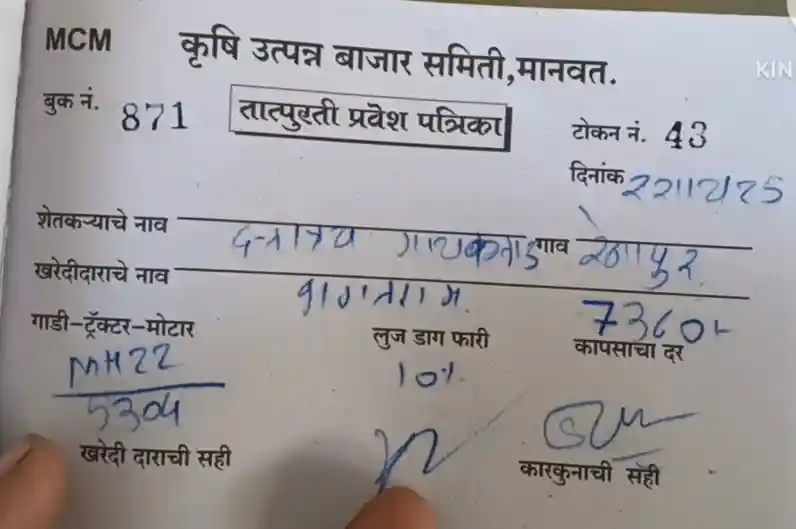 MCM कृषि उत्पन्न बाजार समिती,मानवत.
KIN
बुक नं. 871 तात्पुरती प्रवेश पत्रिका टोकन नं. 43
दिनांक
शेतकऱ्याचे नाव दत्तात्रय गायकवाड गाव रेणापुर
खरेदीदाराचे नाव भगतराम
गाडी-ट्रॅक्टर-मोटार लुज डाग फारी कापसाचा दर
MH22 10%
5304
खरेदी दाराची सही कारकुनाची सही